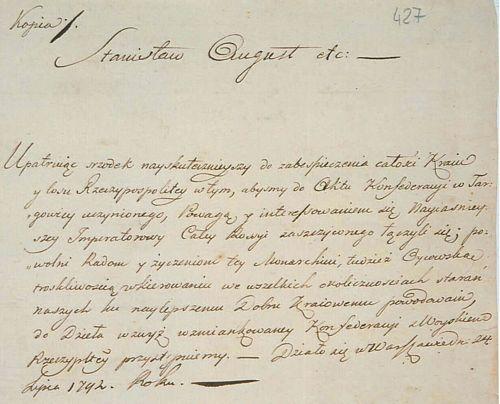 Kopia /.
427
Stanisław August etc: —
Upatruiąc srzodek nayskutecznieyszy do zabespieczenia całości Kraiu
y losu Rzeczypospolitey w tym, abyśmy do Aktu Konfederacyi w Tar
gowicy uczynionego, Powagą y interessowaniem się Nayiaśniey
szey Imperatorowy Całey Rossyi zaszczyconego łączyli się; po
wolni Radom y życzeniom tey Monarchini, tudzież Oycowską
troskliwością w kierowaniu we wszelkich okolicznościach starań
naszych ku naylepszemu Dobru Kraiowemu powodowani,
do Dzieła wzwyż wzmiankowaney Konfederacyi z Woyskiem
Rzeczypltey przystępuiemy. — Działo się w Warszawie dn: 24
Lipca 1792. Roku. —